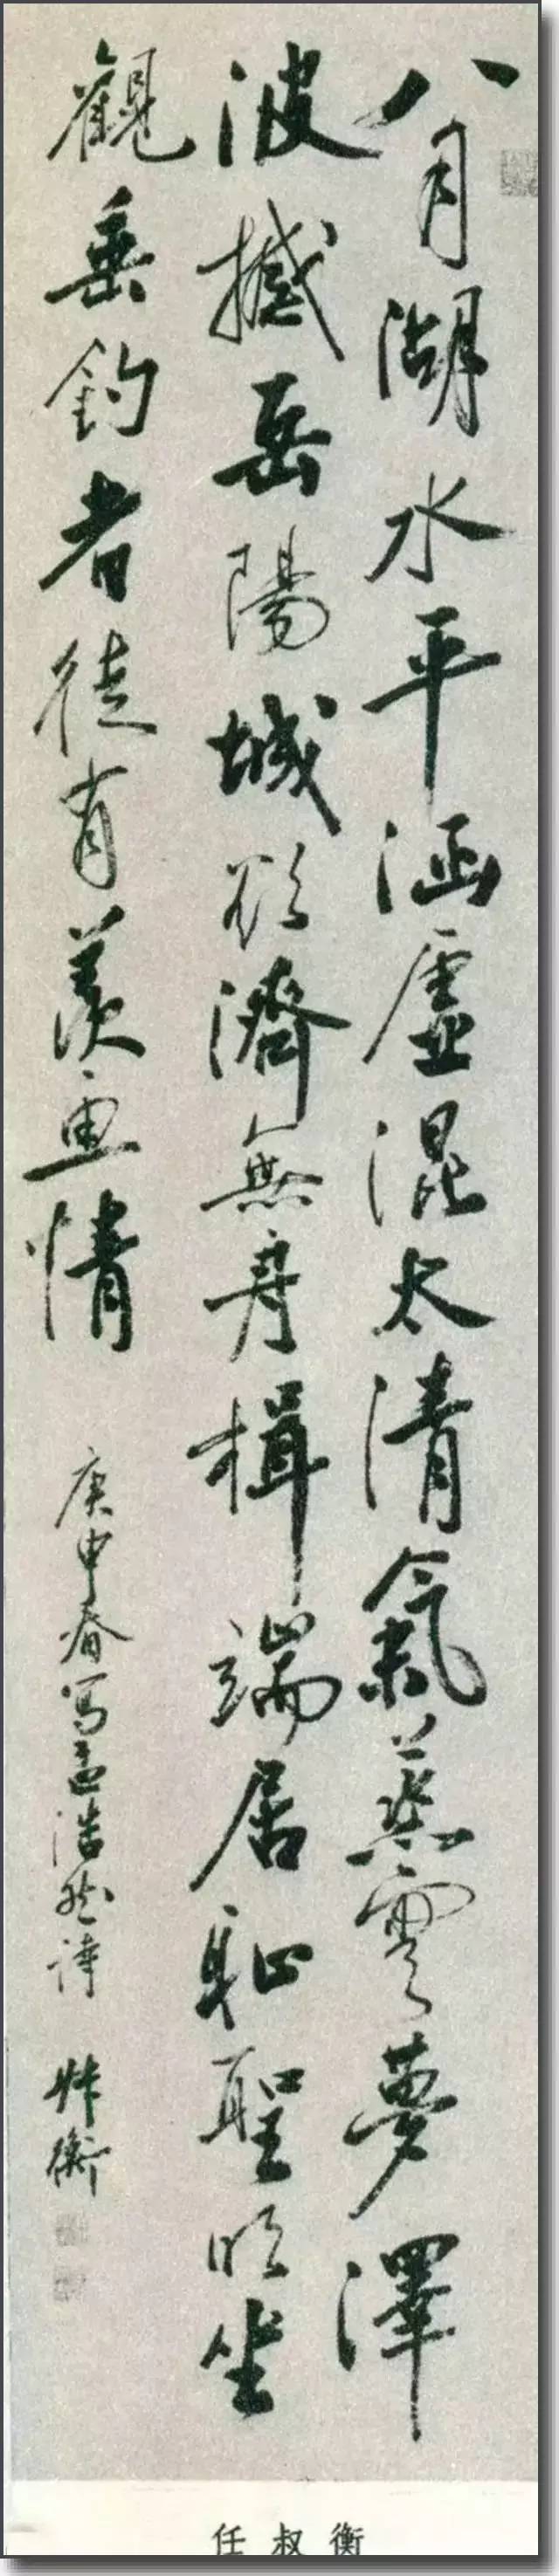 八月湖水平涵虛混太清氣蒸雲夢澤
波撼岳陽城欲濟無舟楫端居恥聖明坐
觀垂釣者徒有羨魚情
庚申春写孟浩然诗 叔衡
任叔衡